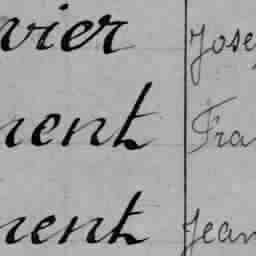 vier Jose
nent Fra
nent Jean